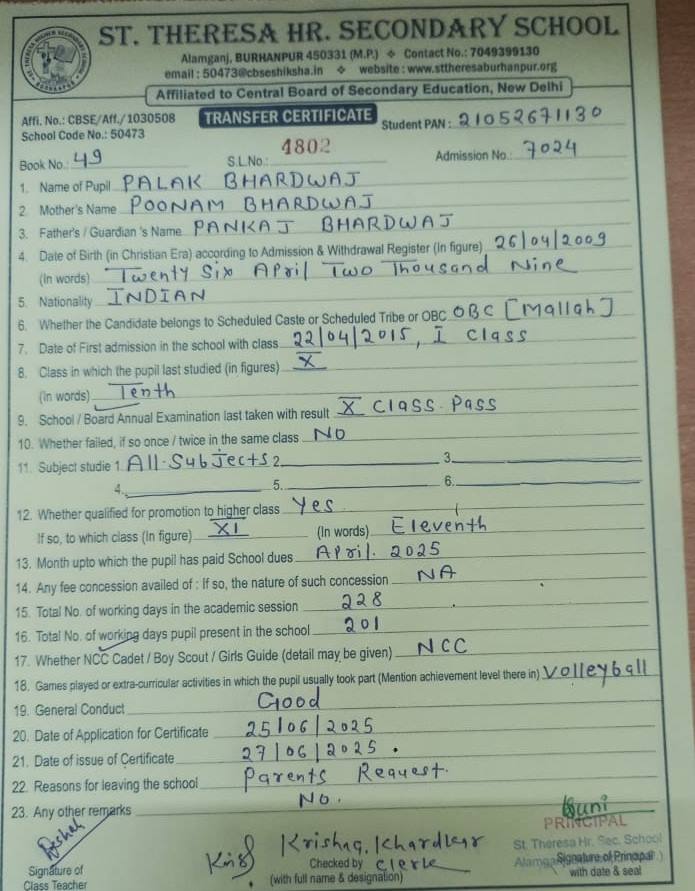 ST. THERESA HR. SECONDARY SCHOOL
Alamganj, BURHANPUR 450331 (M.P.) ❖ Contact No.: 7049399130
email : 50473@cbseshiksha.in ❖ website : www.sttheresaburhanpur.org
Affiliated to Central Board of Secondary Education, New Delhi
Affi. No.: CBSE/Aff./1030508 TRANSFER CERTIFICATE Student PAN : 21052671130
School Code No.: 50473
Book No.: 49 S.L.No.: 4802 Admission No.: 7024
1. Name of Pupil PALAK BHARDWAJ
2. Mother's Name POONAM BHARDWAJ
3. Father's / Guardian 's Name PANKAJ BHARDWAJ
4. Date of Birth (in Christian Era) according to Admission & Withdrawal Register (In figure) 26/04/2009
(In words) Twenty Six April Two Thousand Nine
5. Nationality INDIAN
6. Whether the Candidate belongs to Scheduled Caste or Scheduled Tribe or OBC OBC [Mallah]
7. Date of First admission in the school with class 22/04/2015, I Class
8. Class in which the pupil last studied (in figures) X
(In words) Tenth
9. School / Board Annual Examination last taken with result X Class Pass
10. Whether failed, if so once / twice in the same class NO
11. Subject studie 1. All-Subjects 2. 3.
4. 5. 6.
12. Whether qualified for promotion to higher class Yes
If so, to which class (In figure) XI (In words) Eleventh
13. Month upto which the pupil has paid School dues April. 2025
14. Any fee concession availed of : If so, the nature of such concession NA
15. Total No. of working days in the academic session 228
16. Total No. of working days pupil present in the school 201
17. Whether NCC Cadet / Boy Scout / Girls Guide (detail may be given) NCC
18. Games played or extra-curricular activities in which the pupil usually took part (Mention achievement level there in) Volleyball
19. General Conduct Good
20. Date of Application for Certificate 25/06/2025
21. Date of issue of Certificate 27/06/2025.
22. Reasons for leaving the school Parents Request.
23. Any other remarks No.
PRINCIPAL
St. Theresa Hr. Sec. School
Krishna Khardkar
Signature of Class Teacher
Checked by Clerk
(with full name & designation)
Signature of Principal
with date & seal